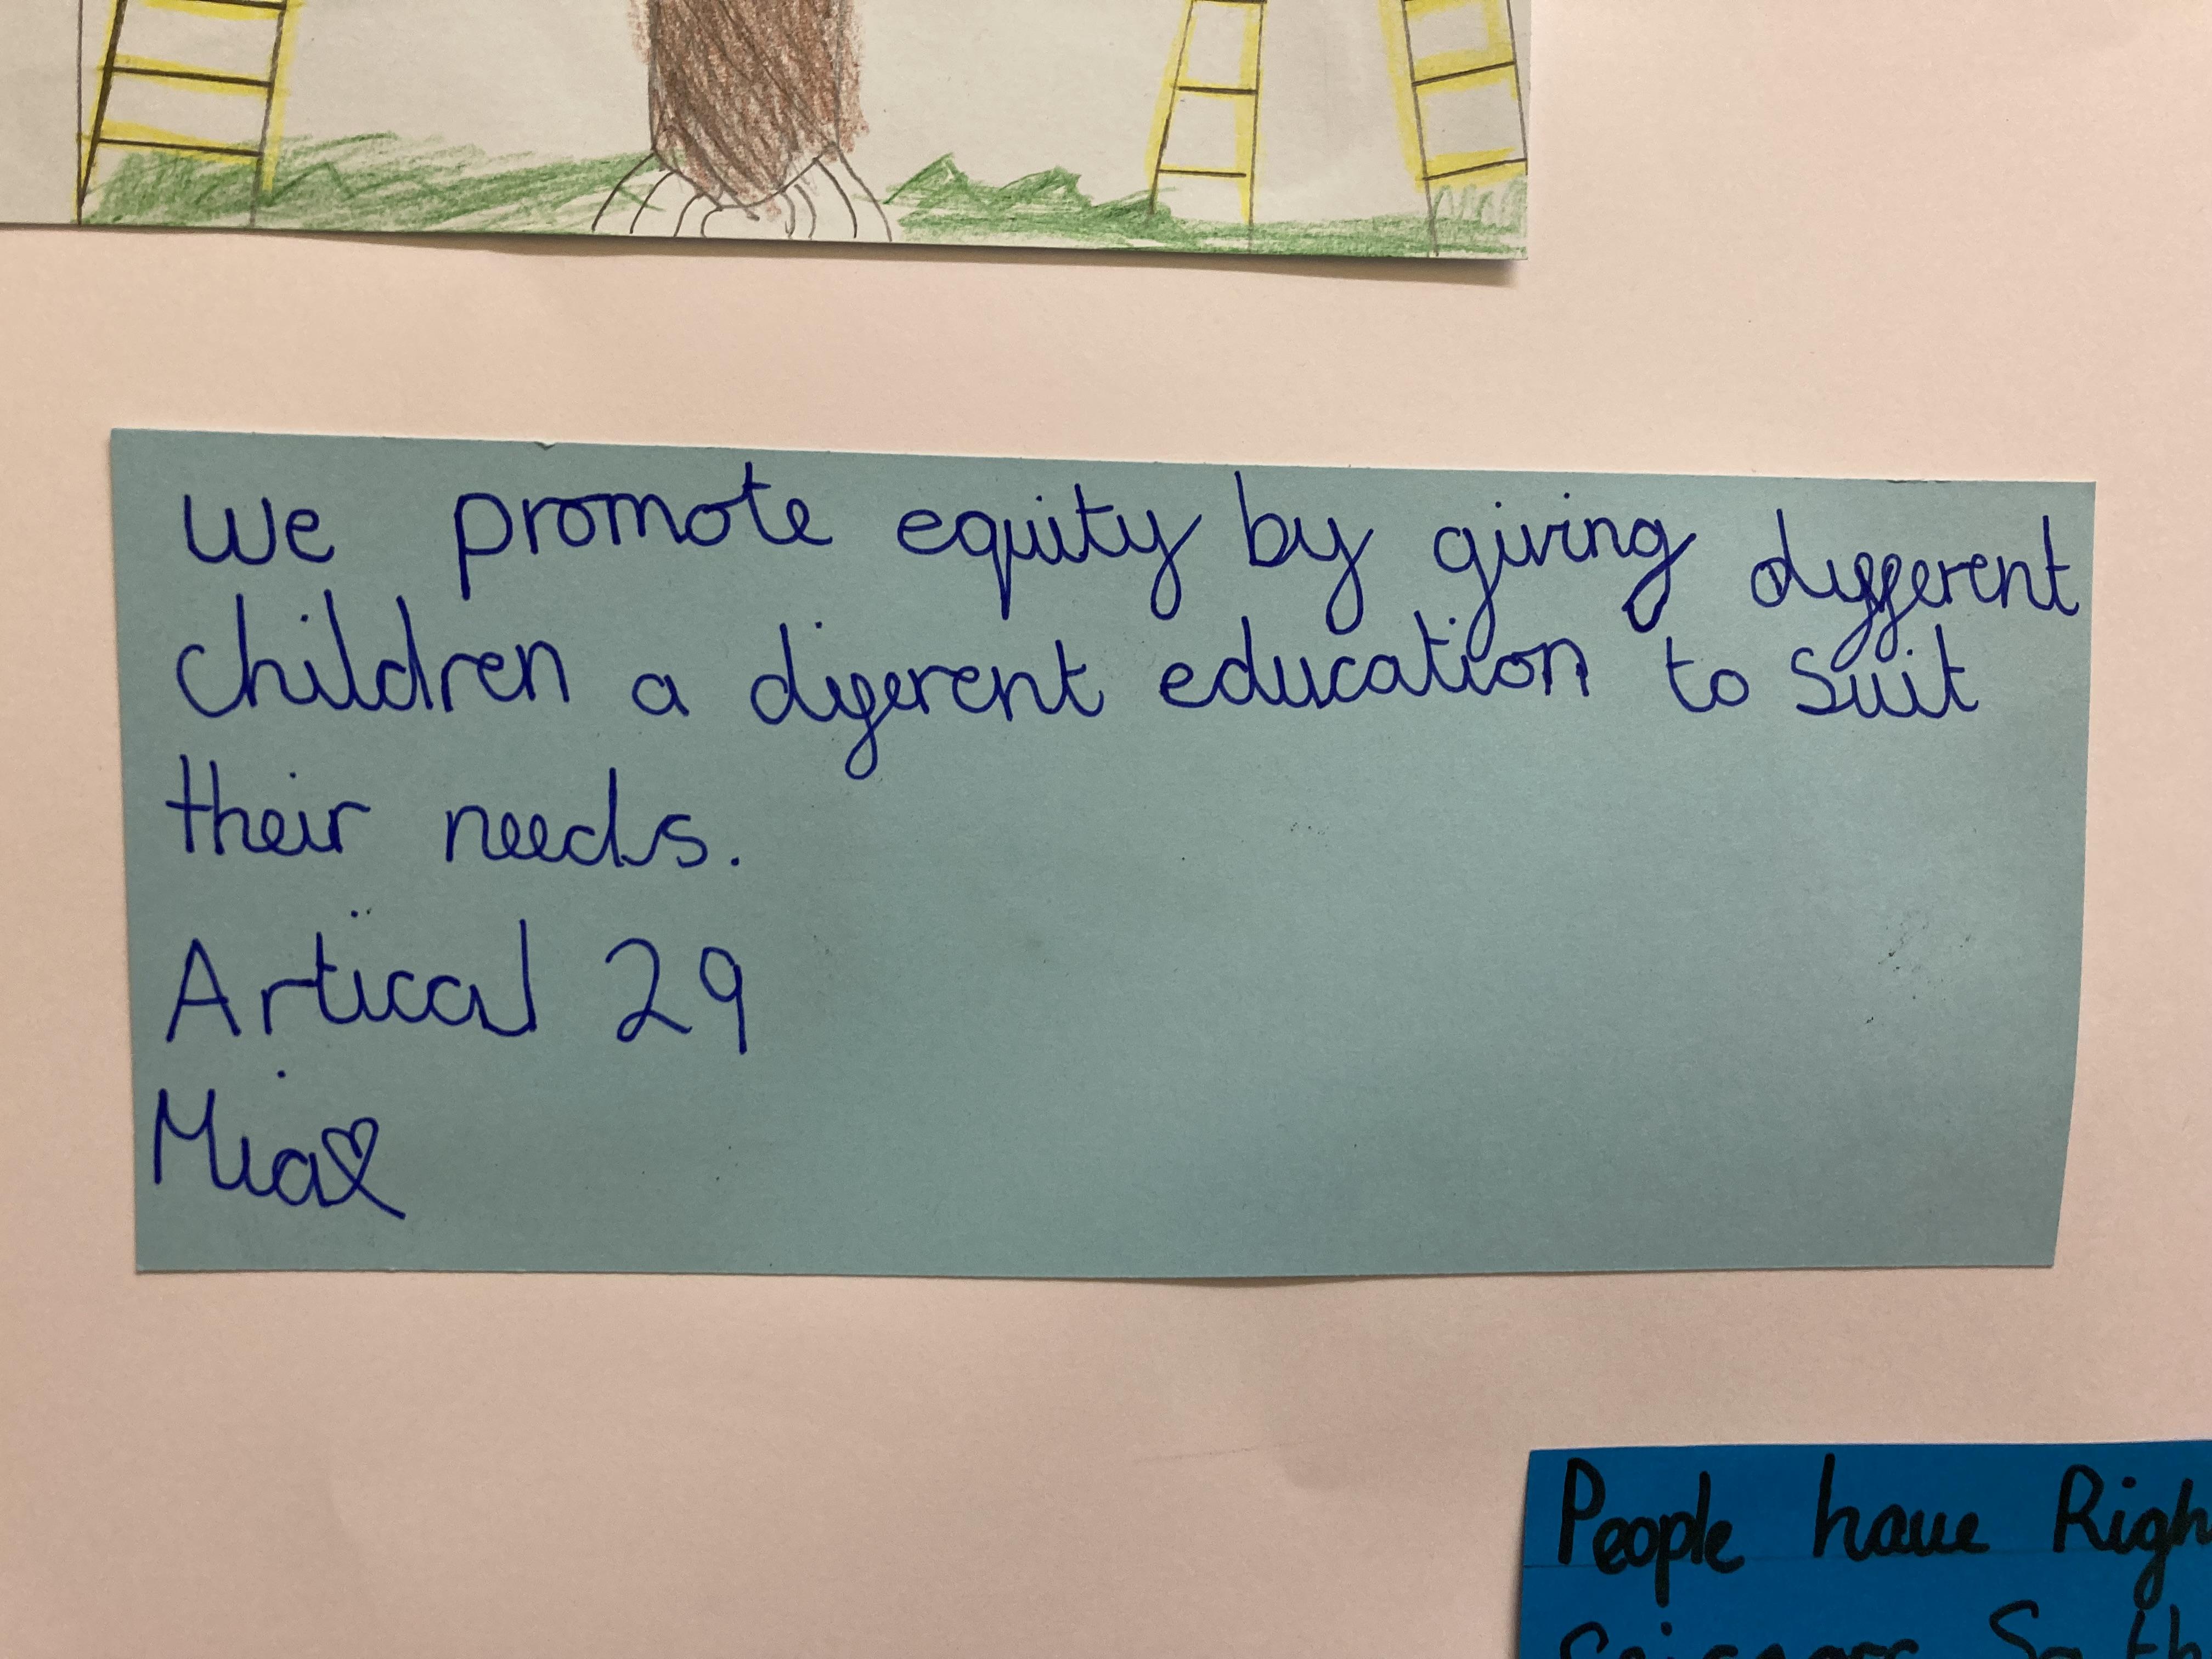 We promote equity by giving different
children a diferent education to suit
their needs.
Artical 29
Mia
People have Righ
Scissors So th